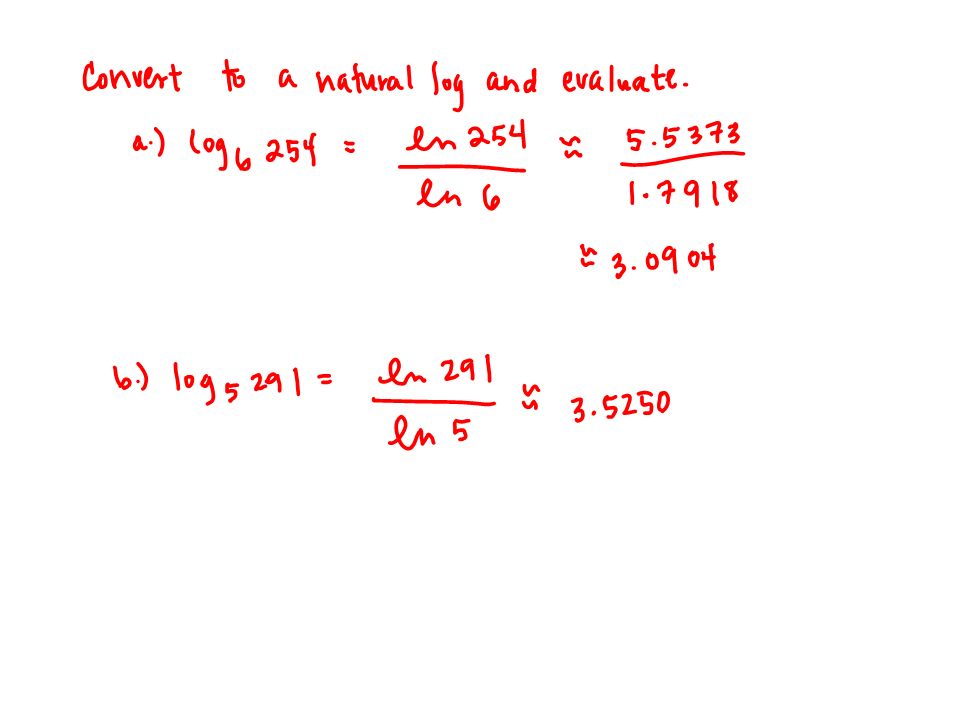 Convert to a natural log and evaluate.
a.) log₆ 254 = ln 254 / ln 6 ≈ 5.5373 / 1.7918
≈ 3.0904
b.) log₅ 291 = ln 291 / ln 5 ≈ 3.5250